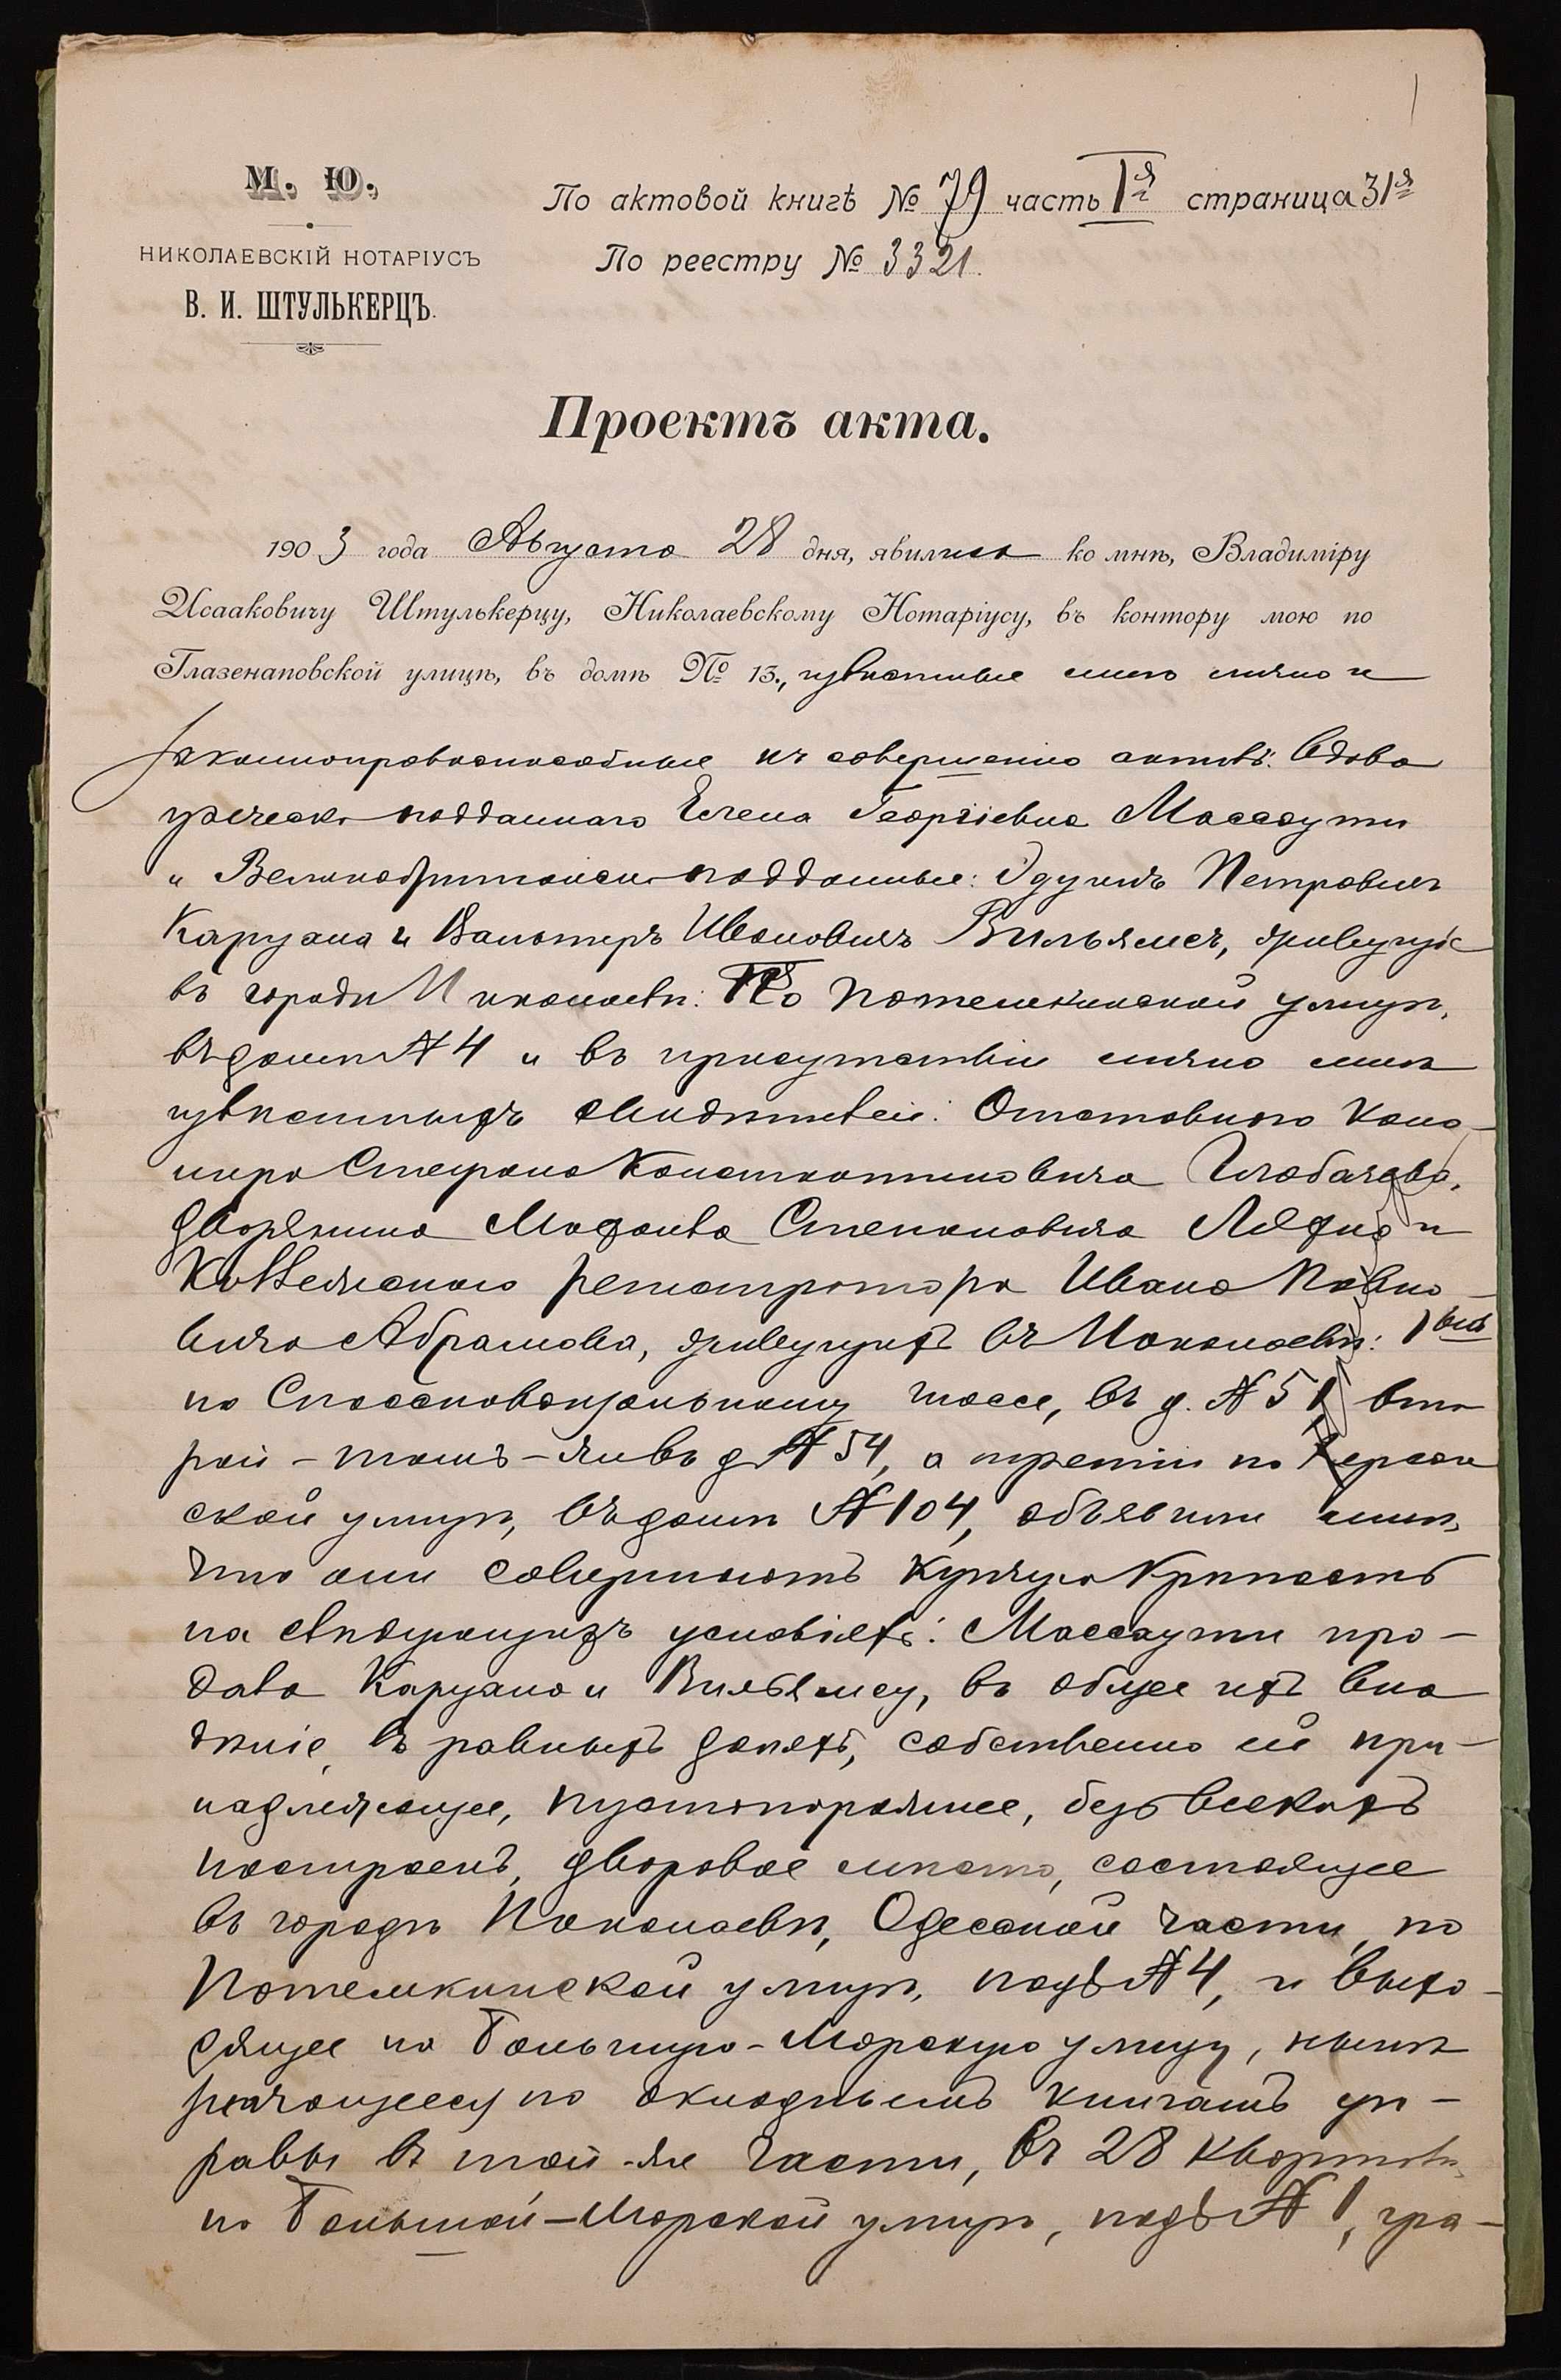 М. Ю.
НИКОЛАЕВСКІЙ НОТАРІУСЪ
В. И. ШТУЛЬКЕРЦЪ.
По актовой книгѣ № 79 часть Iя страница 31я
По реестру № 3321.
Проектъ акта.
1903 года Августа 28 дня, явились ко мнѣ, Владиміру
Исааковичу Штулькерцу, Николаевскому Нотаріусу, въ контору мою по
Глазенаповской улицѣ, въ домѣ № 13., извѣстные мнѣ лично и
законноправоспособные къ совершенію актовъ: Вдова
греческ. подданнаго Елена Георгіевна Массаути
и Великобританск. подданные: Эдуинъ Петровичъ
Каруана и Вальтеръ Ивановичъ Вильямсъ, живущіе
въ городѣ Николаевѣ: По Потемкинской улицѣ,
въ домѣ № 4 и въ присутствіи лично мнѣ
извѣстныхъ свидѣтелей: Отставного кано-
нира Стефана Константиновича Глобачева,
дворянина Михаила Степановича и
Коллежскаго регистратора Ивана Павло-
вича Абрамова, живущихъ въ Николаевѣ: 1вый
по Спасскововокзальному шоссе, въ д. № 51, вто
рой - тамъ-же въ д № 54, а третій по Херсон
ской улицѣ, въ домѣ № 104, объявили мнѣ,
что они совершаютъ купчую крѣпость
на слѣдующихъ условіяхъ: Массаути про-
дала Каруана и Вильямсу, въ общее ихъ вла
дѣніе, въ равныхъ доляхъ, собственно ей при-
надлежащее, пустопорожнее, безъ всякихъ
построекъ, дворовое мѣсто, состоящее
въ городѣ Николаевѣ, Одесской части, по
Потемкинской улицѣ, подъ № 4, и выхо-
дящее на Большую-Морскую улицу, нынѣ
значущееся по окладнымъ книгамъ уп-
равы въ той-же части, въ 28 кварталѣ,
по Большой-Морской улицѣ, подъ № 1, гра-